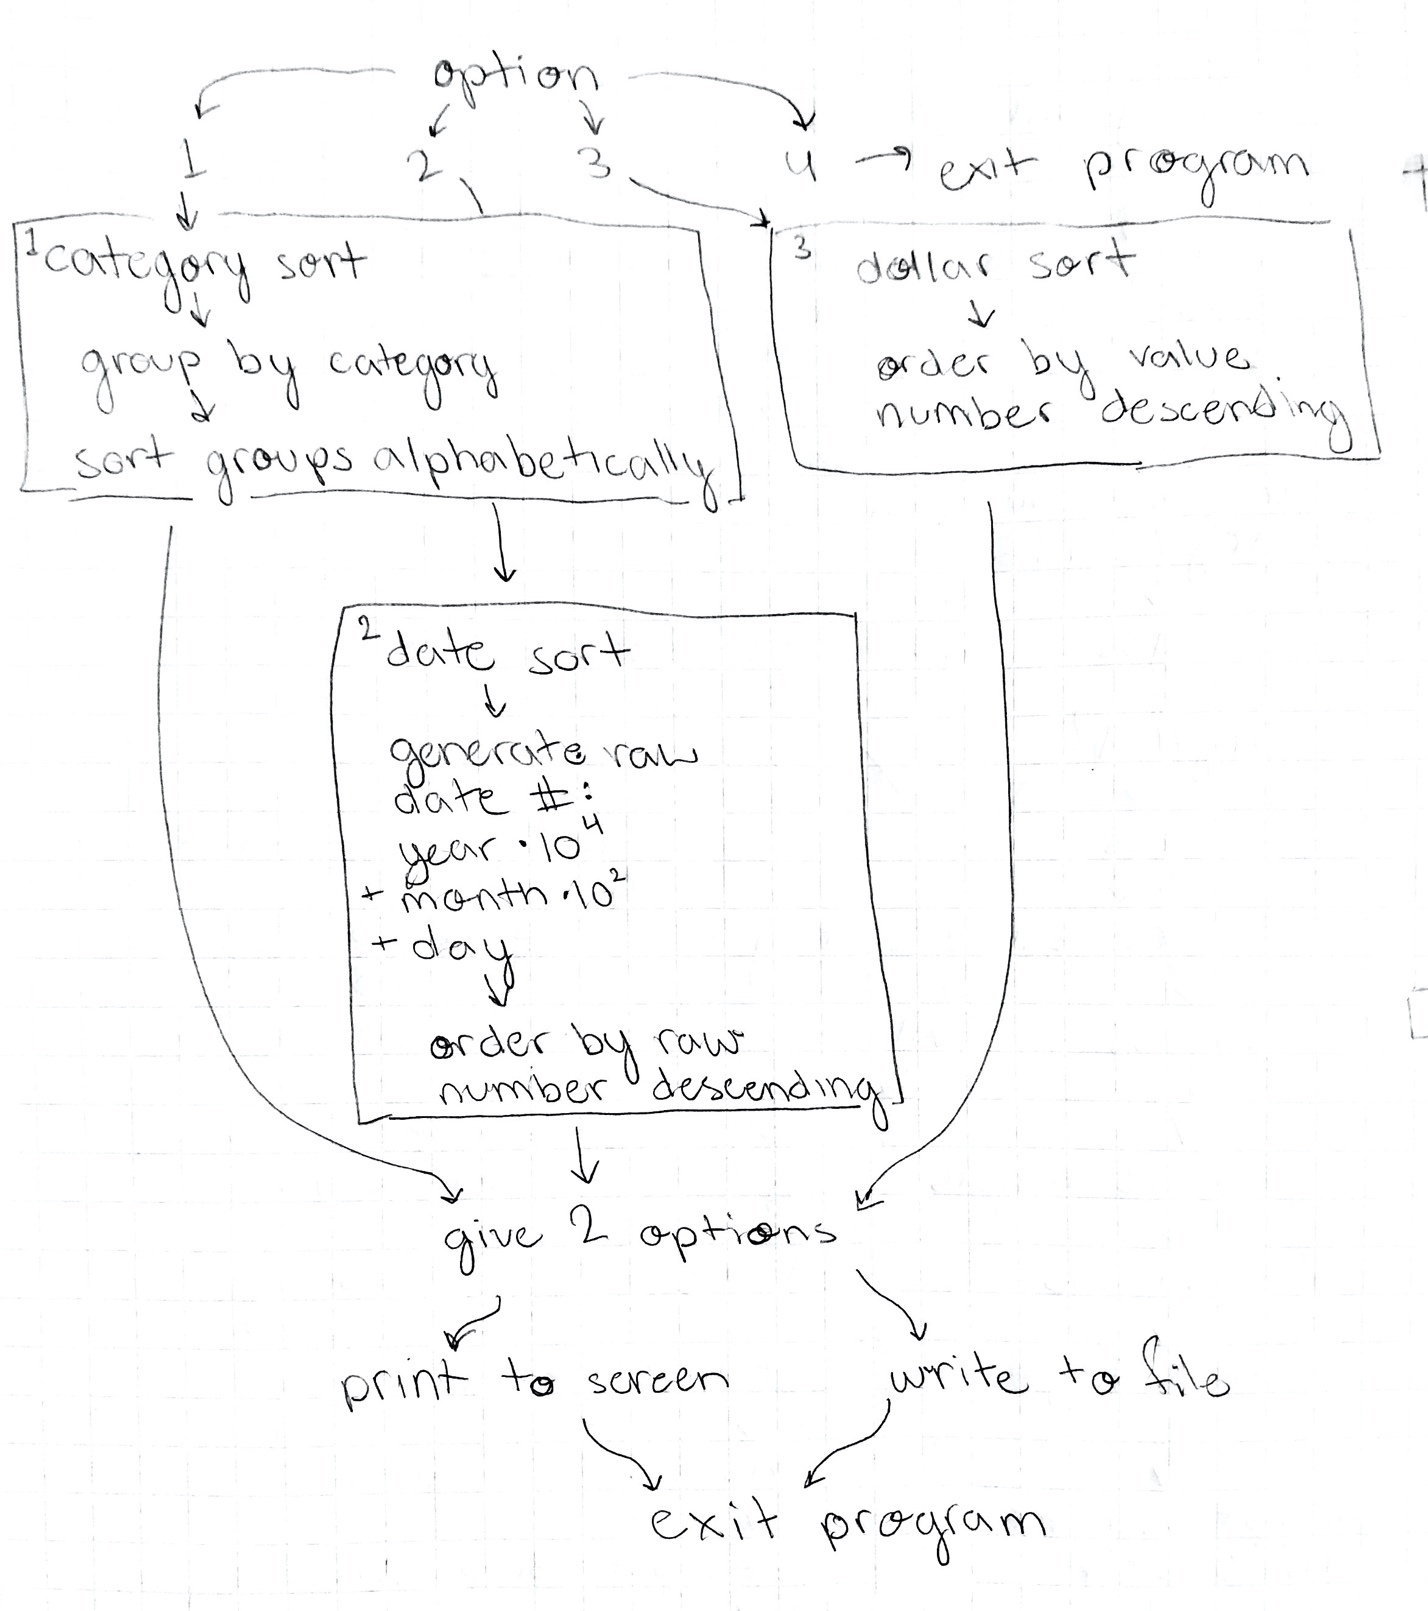 option
1 2 3 4 → exit program
1 category sort
group by category
sort groups alphabetically
3 dollar sort
order by value
number descending
2 date sort
generate raw
date #:
year · 10⁴
+ month · 10²
+ day
order by raw
number descending
give 2 options
print to screen
write to file
exit program